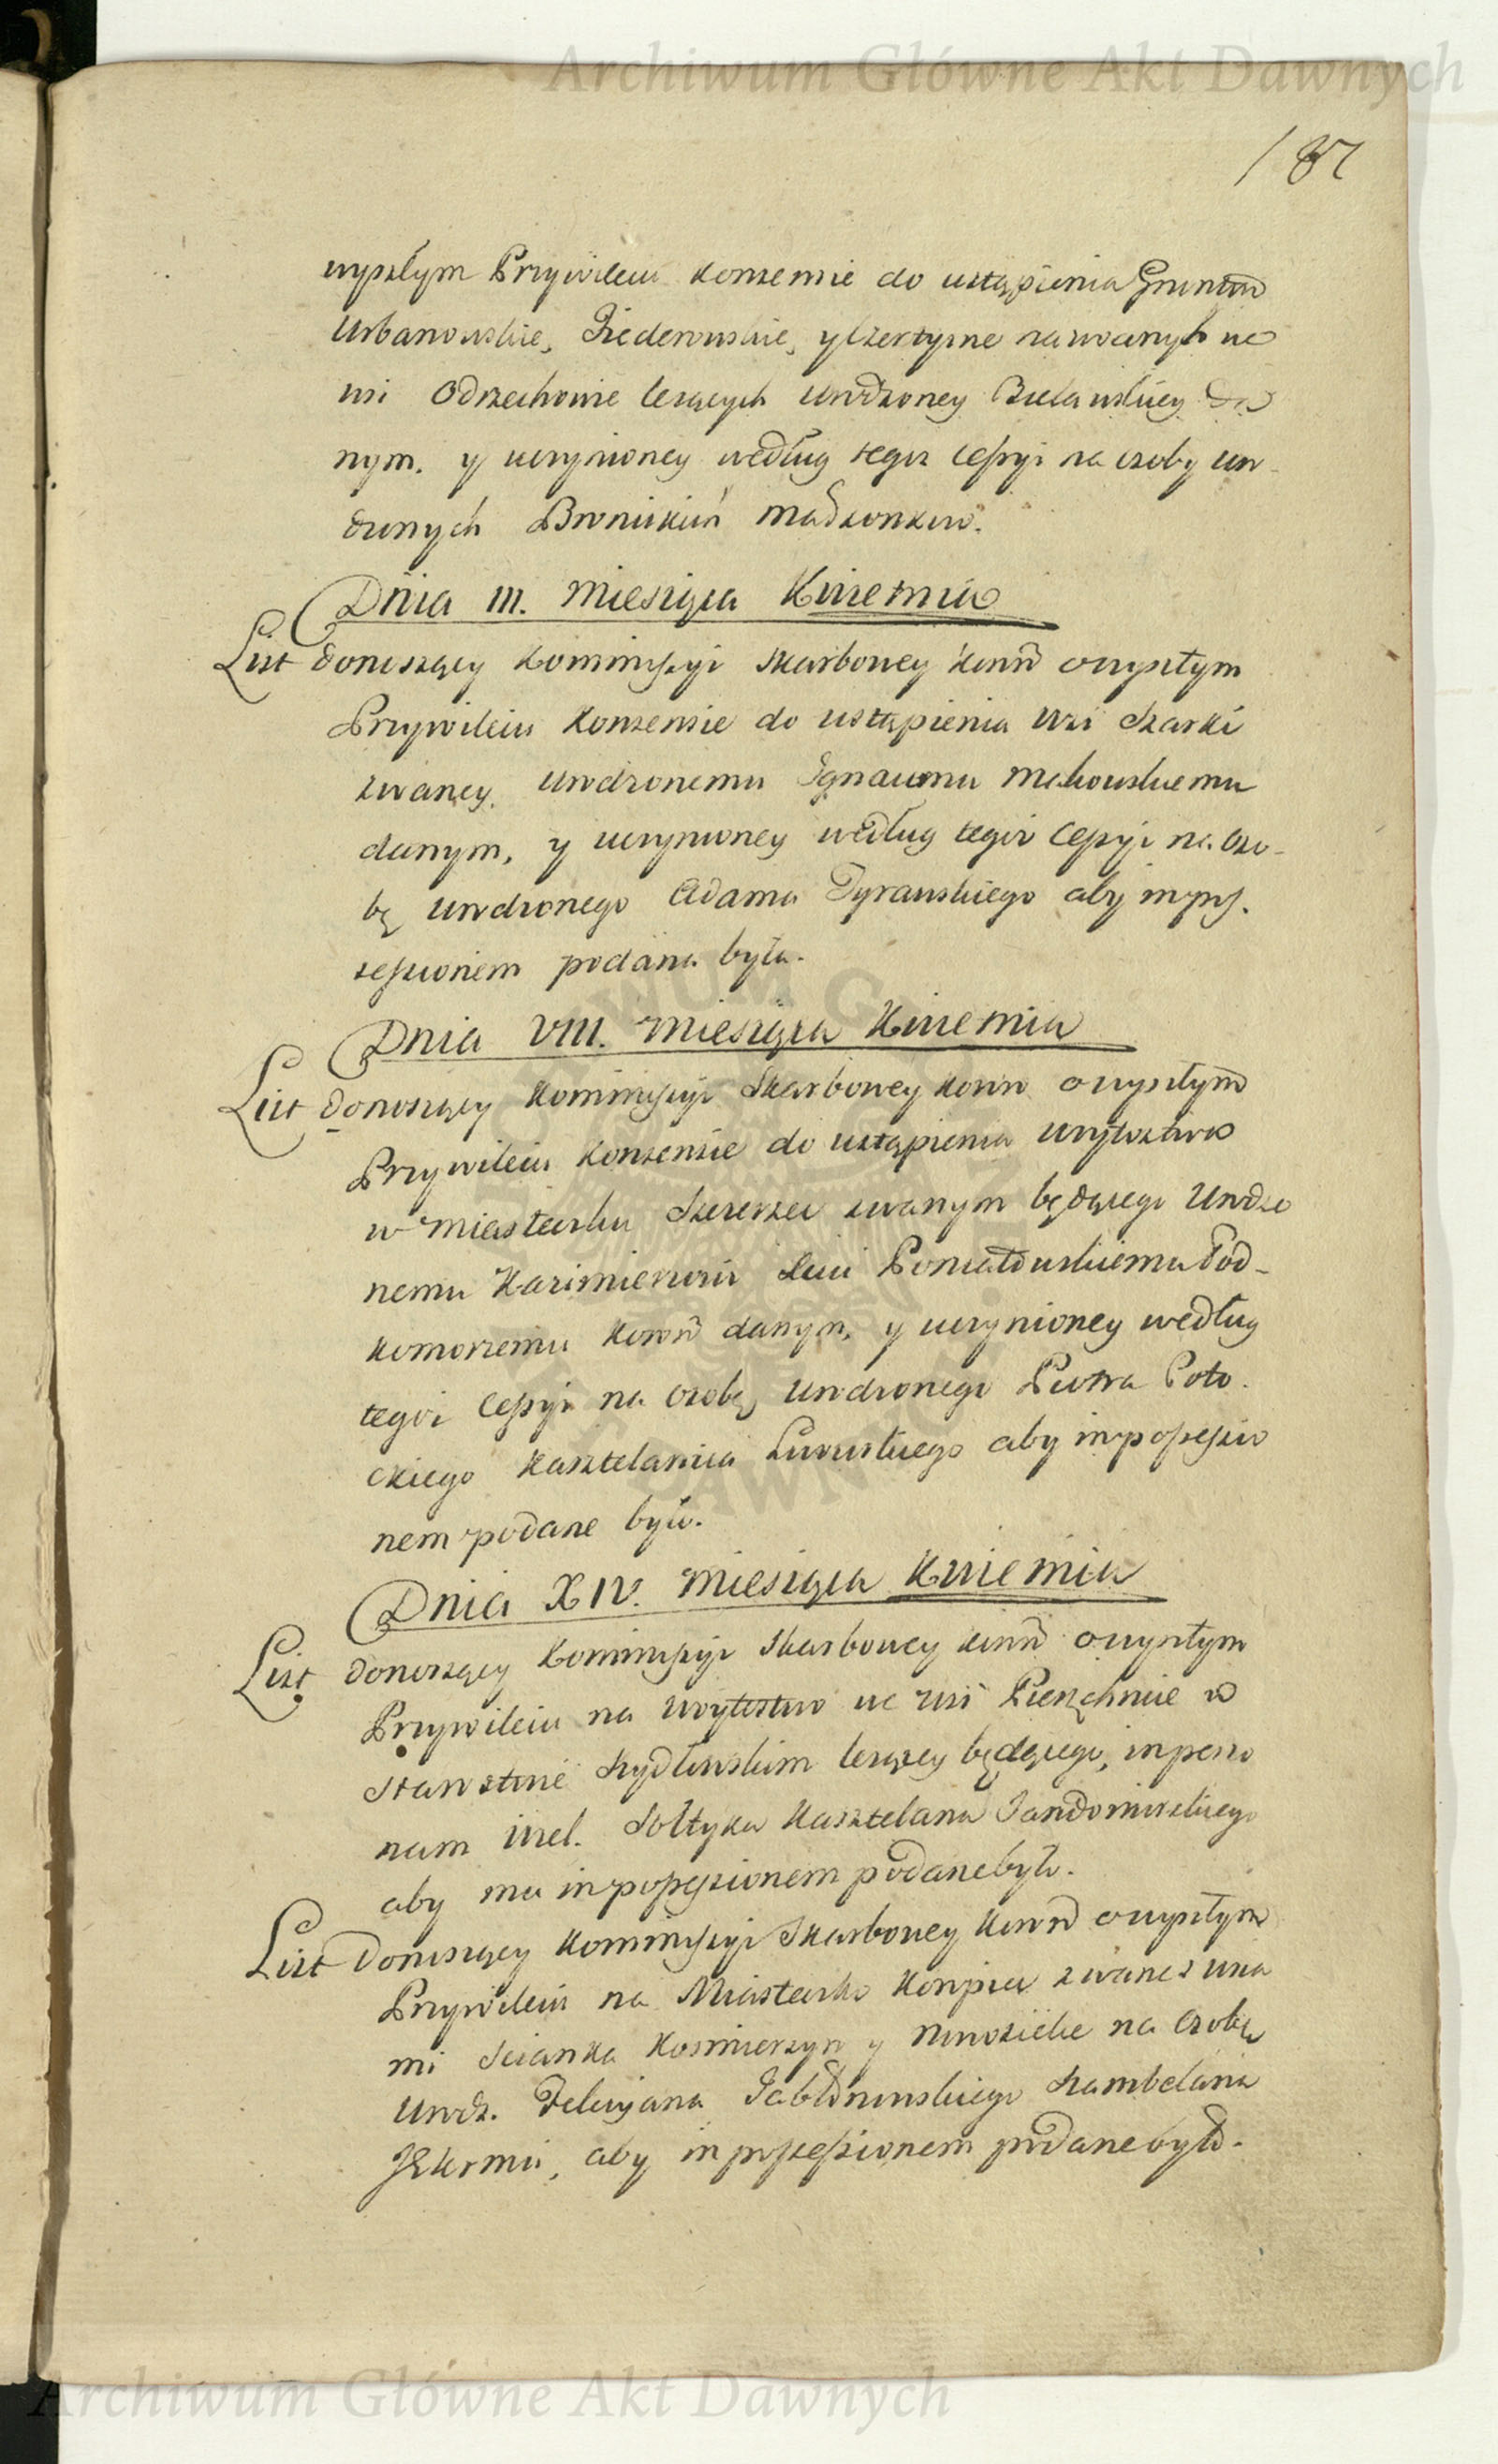 Archiwum Główne Akt Dawnych
187
wyszłym Przywileiu konsensie do ustąpienia Gruntow
Urbanowskie, y nazwanych we
wsi Odrzechowie leżących Urodzoney Bielawskiey da
nym, y uczynioney według tegoż Cessyi na osoby Uro
dzonych Bronickich Małżonkow.
Dnia III. Miesiąca Kwietnia
List donoszący Kommissyi Skarbowey Koronń o wyszłym
Przywileiu Konsensie do ustąpienia Wsi Szarki
zwaney, Urodzonemu Ignacemu Makowskiemu
danym, y uczynioney według tegoż Cessyi na Oso-
bę Urodzonego Adama Tyrawskiego aby in pos-
sessionem podana była.
Dnia VIII. Miesiąca Kwietnia
List donoszący Kommissyi Skarbowey Koronń o wyszłym
Przywileiu Konsensie do ustąpienia Woytostwo
w Miasteczku zwanym będącego Urodzo
nemu Kazimierzowi Xciu Poniatowskiemu Pod-
komorzemu Koronń danym, y uczynioney według
tegoż Cessyi na osobę Urodzonego Piotra Poto-
ckiego Kasztelanica Lwowskiego aby in possessio
nem podane było.
Dnia XIV. Miesiąca Kwietnia
List donoszący Kommissyi Skarbowey Koronń o wyszłym
Przywileiu na Woytostwo we wsi w
Starostwie Szydłowskim leżącey będącego, in perso
nam Wiel. Sołtyka Kasztelana Sandomirskiego
aby mu in possessionem podane było.
List donoszący Kommissyi Skarbowey Koronń o wyszłym
Przywileiu na Miasteczko Koropiec zwane z wsia
mi Scianka Kosmierzyn y na Osobę
Urodz. Felicyana Jabłonowskiego Szambelana
JKrmci, aby in possessionem podane było.
Archiwum Główne Akt Dawnych